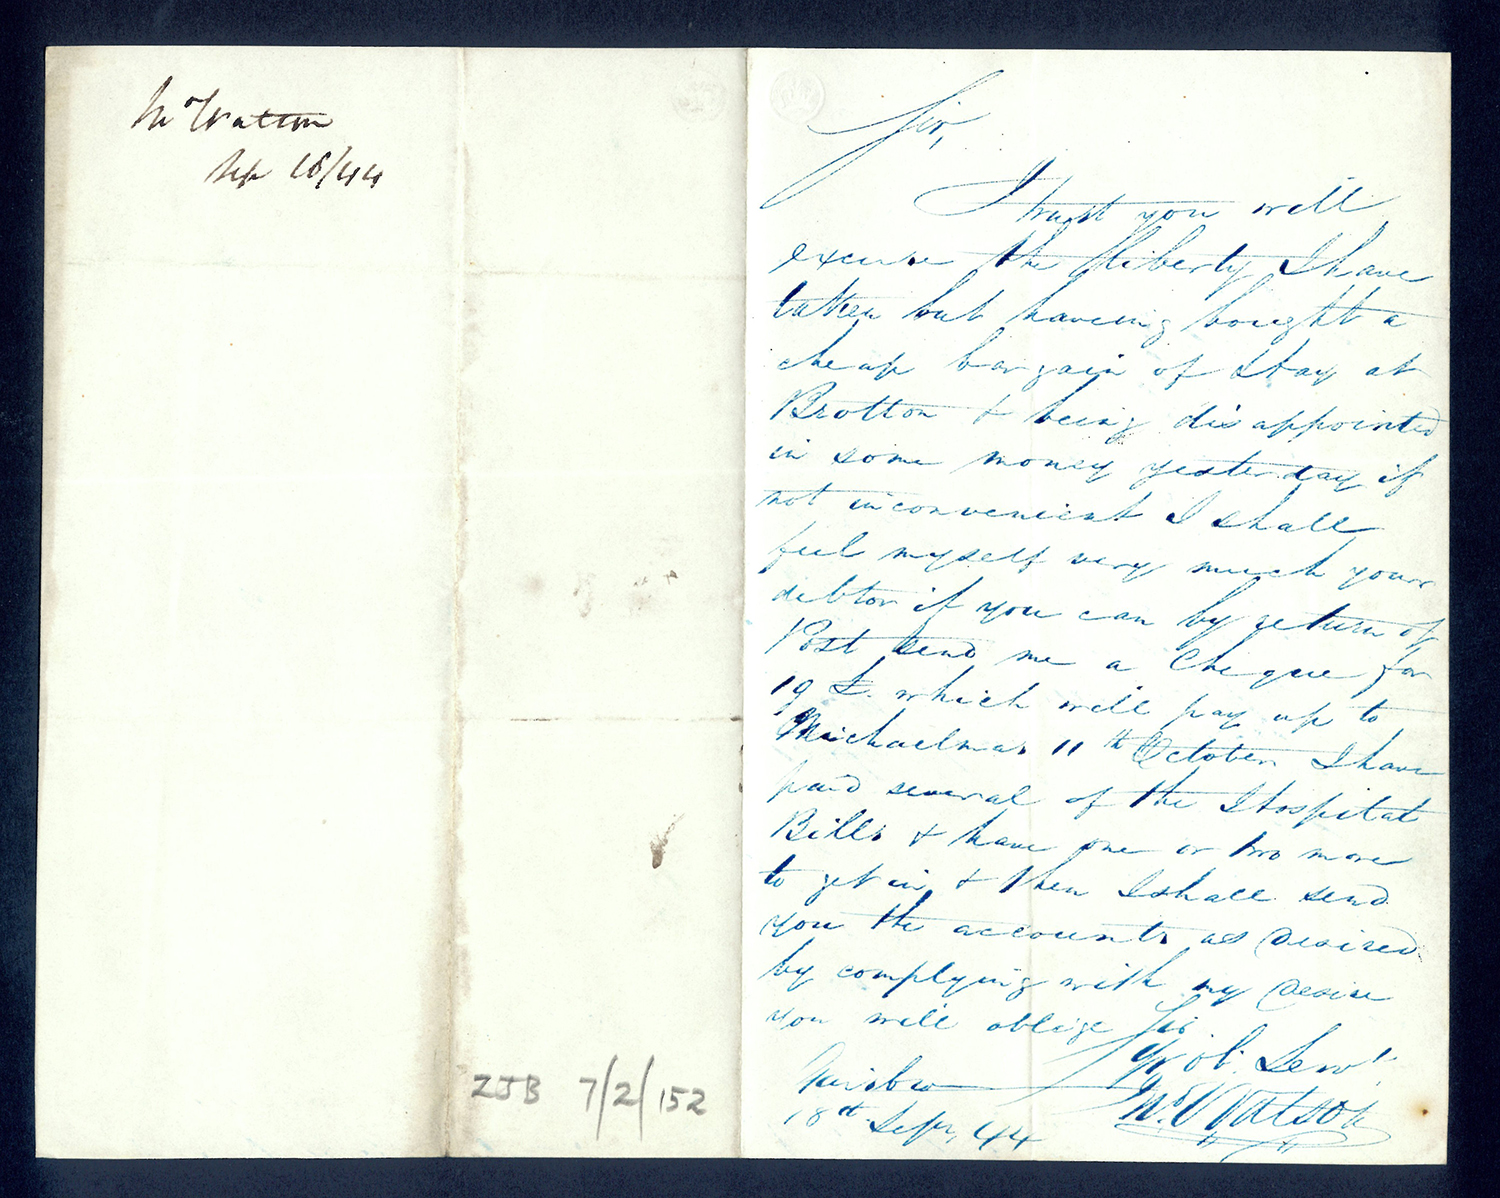 Mr Watson
Sep 18/44
ZJB 7/2/152
Sir,
I trust you will
excuse the liberty I have
taken but haveing bought a
cheap bargain of Hay at
Brotton & being disappointed
in some money yesterday if
not inconvenient I shall
feel myself very much your
debtor if you can by return of
Post send me a Cheque for
19 £. which will pay up to
Michaelmas 11th October I have
paid several of the Hospital
Bills & have one or two more
to get in & then I shall send
you the accounts as desired
by complying with my desire
you will oblige Sir
Yr ob. Servt.
Wm Watson
18th Sepr, 44